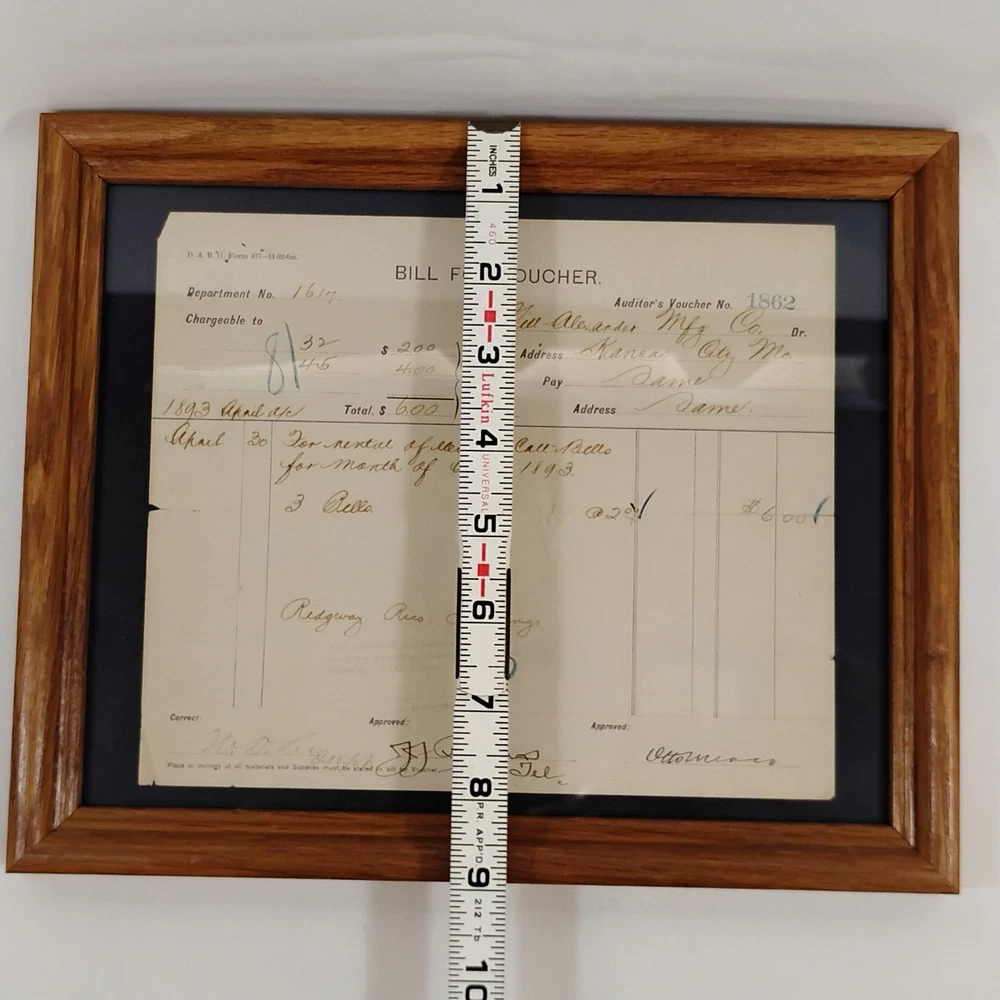 D. & R. G. Form 417—11-92-6m.
BILL F OUCHER.
Department No. 1617
Auditor's Voucher No. 1862
Chargeable to
Alexander Mfg Co. Dr.
81 32 $ 2.00
Address Kansas City Mo
45 4.00
Pay Same
1893 April a/c Total, $ 6.00
Address Same.
April 30 For rental of Call Bells
for Month of 1893.
3 Bells @ 2 $6.00
Ridgway
Correct:
Approved:
Approved:
Place of delivery of all materials and Supplies must be stated in bill for Voucher.
Tel.
INCHES
1
460
2
3
Lufkin
4
UNIVERSAL
5
6
7
8
P.R. APP'D.
9
212 Tb
10